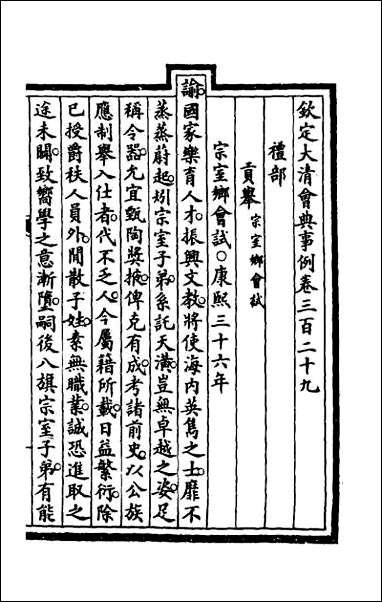 欽定大清會典事例卷三百二十九
禮部
貢舉宗室鄉會試
宗室鄉會試○康熙三十六年
諭國家樂育人才振興文教將使海內英雋之士靡不
蒸蒸蔚起矧宗室子弟系託天潢豈無卓越之姿足
稱令器允宜甄陶獎掖俾克有成考諸前史以公族
應制舉入仕者代不乏人今屬籍所載日益繁衍除
已授爵秩人員外閒散子姓素無職業誠恐進取之
途未闢致嚮學之意漸隳嗣後八旗宗室子弟有能